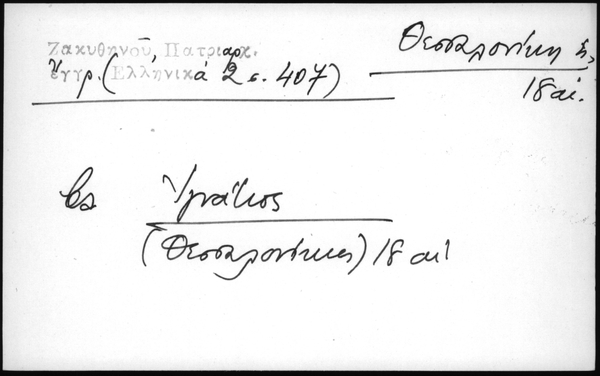 Ζακυθηνοῦ, Πατριαρχ.
ἔγγρ. (Ἑλληνικά 2 σ. 407)
Θεσσαλονίκη
18 αἰ.
Ἰγνάτιος
(Θεσσαλονίκης) 18 αἰ